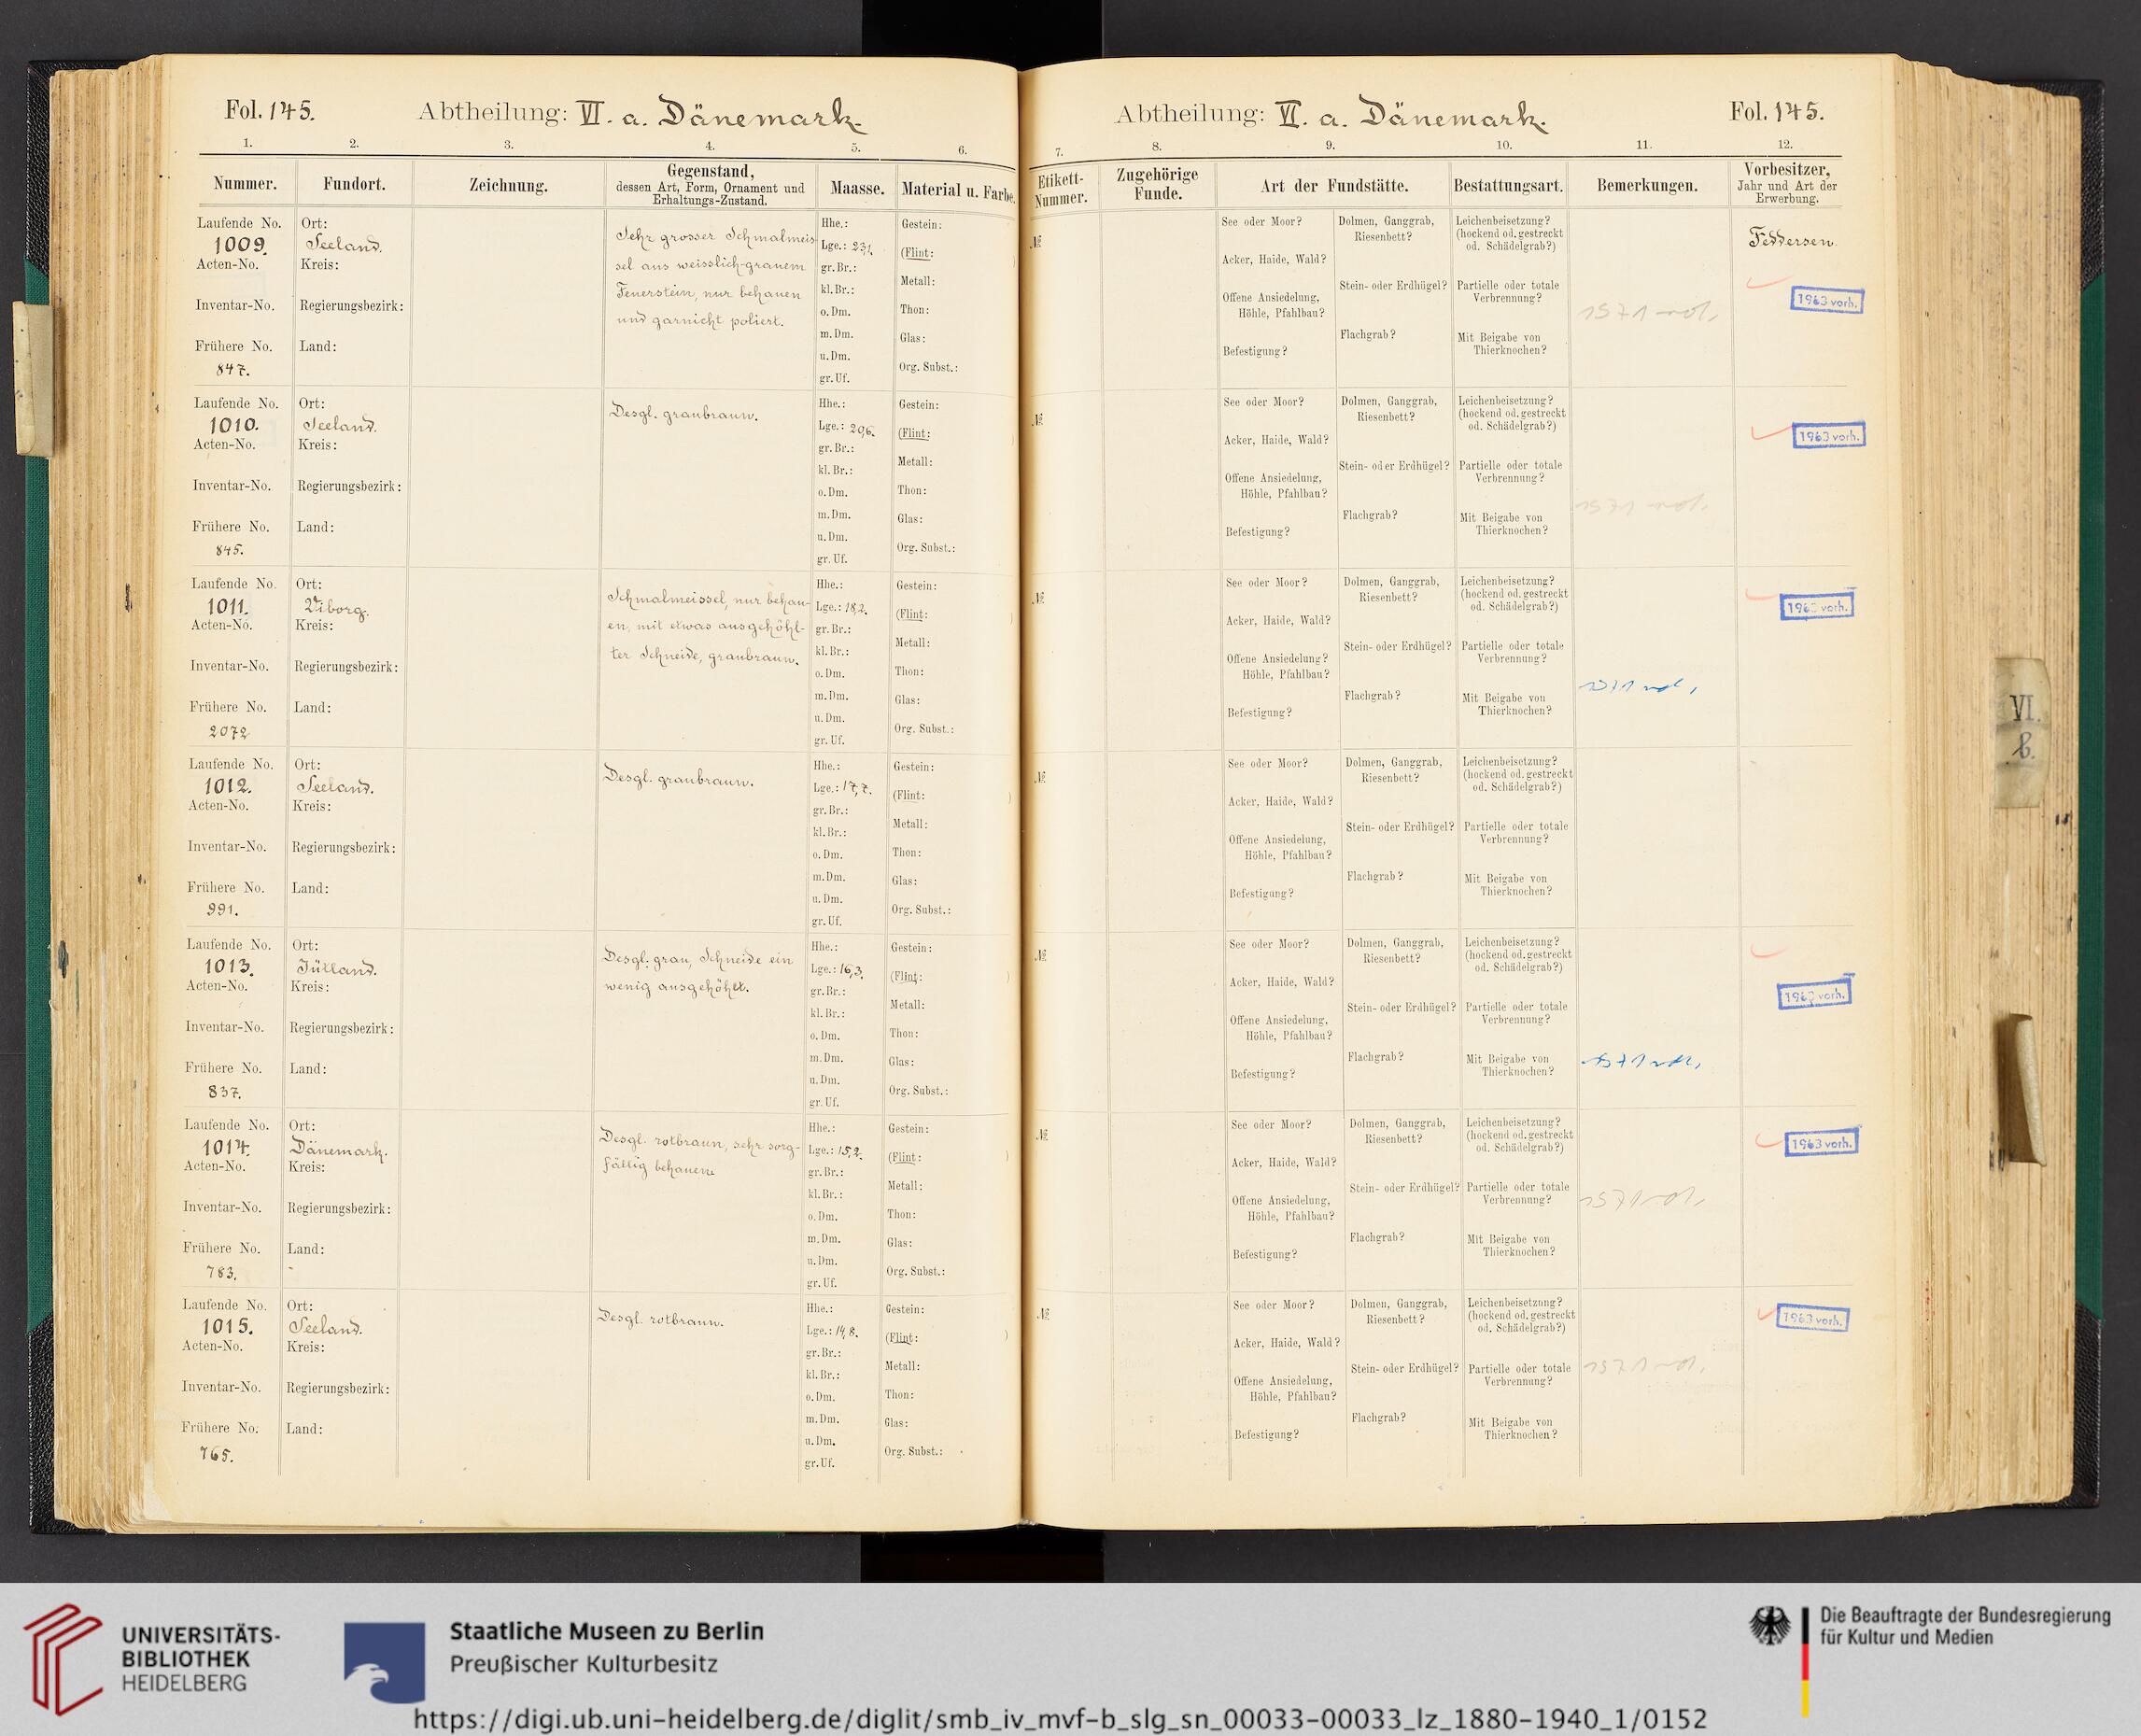 Fol. 145. Abtheilung: VI. a. Dänemark.
1. 2. 3. 4. 5. 6.
Nummer. Fundort. Zeichnung. Gegenstand, dessen Art, Form, Ornament und Erhaltungs-Zustand. Maasse. Material u. Farbe.
Laufende No. 1009.
Acten-No.
Inventar-No.
Frühere No. 847.
Ort: Seeland.
Kreis:
Regierungsbezirk:
Land:
Sehr grosser Schmalmeis-
sel aus weisslich-grauem
Feuerstein, nur behauen
und garnicht poliert.
Hhe.:
Lge.: 23,1.
gr. Br.:
kl. Br.:
o. Dm.
m. Dm.
u. Dm.
gr. Uf.
Gestein:
(Flint: )
Metall:
Thon:
Glas:
Org. Subst.:
Laufende No. 1010.
Acten-No.
Inventar-No.
Frühere No. 845.
Ort: Seeland.
Kreis:
Regierungsbezirk:
Land:
Desgl. graubraun.
Hhe.:
Lge.: 20,6.
gr. Br.:
kl. Br.:
o. Dm.
m. Dm.
u. Dm.
gr. Uf.
Gestein:
(Flint: )
Metall:
Thon:
Glas:
Org. Subst.:
Laufende No. 1011.
Acten-No.
Inventar-No.
Frühere No. 2072
Ort: Viborg.
Kreis:
Regierungsbezirk:
Land:
Schmalmeissel, nur behau-
en, mit etwas ausgehöhl-
ter Schneide, graubraun.
Hhe.:
Lge.: 18,2.
gr. Br.:
kl. Br.:
o. Dm.
m. Dm.
u. Dm.
gr. Uf.
Gestein:
(Flint: )
Metall:
Thon:
Glas:
Org. Subst.:
Laufende No. 1012.
Acten-No.
Inventar-No.
Frühere No. 991.
Ort: Seeland.
Kreis:
Regierungsbezirk:
Land:
Desgl. graubraun.
Hhe.:
Lge.: 17,7.
gr. Br.:
kl. Br.:
o. Dm.
m. Dm.
u. Dm.
gr. Uf.
Gestein:
(Flint: )
Metall:
Thon:
Glas:
Org. Subst.:
Laufende No. 1013.
Acten-No.
Inventar-No.
Frühere No. 837.
Ort: Jütland.
Kreis:
Regierungsbezirk:
Land:
Desgl. grau, Schneide ein
wenig ausgehöhlt.
Hhe.:
Lge.: 16,3.
gr. Br.:
kl. Br.:
o. Dm.
m. Dm.
u. Dm.
gr. Uf.
Gestein:
(Flint: )
Metall:
Thon:
Glas:
Org. Subst.:
Laufende No. 1014.
Acten-No.
Inventar-No.
Frühere No. 783.
Ort: Dänemark.
Kreis:
Regierungsbezirk:
Land:
Desgl. rotbraun, sehr sorg-
fältig behauen.
Hhe.:
Lge.: 15,2.
gr. Br.:
kl. Br.:
o. Dm.
m. Dm.
u. Dm.
gr. Uf.
Gestein:
(Flint: )
Metall:
Thon:
Glas:
Org. Subst.:
Laufende No. 1015.
Acten-No.
Inventar-No.
Frühere No. 765.
Ort: Seeland.
Kreis:
Regierungsbezirk:
Land:
Desgl. rotbraun.
Hhe.:
Lge.: 14,8.
gr. Br.:
kl. Br.:
o. Dm.
m. Dm.
u. Dm.
gr. Uf.
Gestein:
(Flint: )
Metall:
Thon:
Glas:
Org. Subst.:
Abtheilung: VI. a. Dänemark. Fol. 145.
7. 8. 9. 10. 11. 12.
Etikett-Nummer. Zugehörige Funde. Art der Fundstätte. Bestattungsart. Bemerkungen. Vorbesitzer, Jahr und Art der Erwerbung.
№
See oder Moor?
Acker, Haide, Wald?
Offene Ansiedelung,
Höhle, Pfahlbau?
Befestigung?
Dolmen, Ganggrab,
Riesenbett?
Stein- oder Erdhügel?
Flachgrab?
Leichenbeisetzung?
(hockend od. gestreckt
od. Schädelgrab?)
Partielle oder totale
Verbrennung?
Mit Beigabe von
Thierknochen?
Feddersen.
1963 vorh.
№
See oder Moor?
Acker, Haide, Wald?
Offene Ansiedelung,
Höhle, Pfahlbau?
Befestigung?
Dolmen, Ganggrab,
Riesenbett?
Stein- oder Erdhügel?
Flachgrab?
Leichenbeisetzung?
(hockend od. gestreckt
od. Schädelgrab?)
Partielle oder totale
Verbrennung?
Mit Beigabe von
Thierknochen?
1963 vorh.
№
See oder Moor?
Acker, Haide, Wald?
Offene Ansiedelung?
Höhle, Pfahlbau?
Befestigung?
Dolmen, Ganggrab,
Riesenbett?
Stein- oder Erdhügel?
Flachgrab?
Leichenbeisetzung?
(hockend od. gestreckt
od. Schädelgrab?)
Partielle oder totale
Verbrennung?
Mit Beigabe von
Thierknochen?
1963 vorh.
№
See oder Moor?
Acker, Haide, Wald?
Offene Ansiedelung,
Höhle, Pfahlbau?
Befestigung?
Dolmen, Ganggrab,
Riesenbett?
Stein- oder Erdhügel?
Flachgrab?
Leichenbeisetzung?
(hockend od. gestreckt
od. Schädelgrab?)
Partielle oder totale
Verbrennung?
Mit Beigabe von
Thierknochen?
№
See oder Moor?
Acker, Haide, Wald?
Offene Ansiedelung,
Höhle, Pfahlbau?
Befestigung?
Dolmen, Ganggrab,
Riesenbett?
Stein- oder Erdhügel?
Flachgrab?
Leichenbeisetzung?
(hockend od. gestreckt
od. Schädelgrab?)
Partielle oder totale
Verbrennung?
Mit Beigabe von
Thierknochen?
1963 vorh.
№
See oder Moor?
Acker, Haide, Wald?
Offene Ansiedelung,
Höhle, Pfahlbau?
Befestigung?
Dolmen, Ganggrab,
Riesenbett?
Stein- oder Erdhügel?
Flachgrab?
Leichenbeisetzung?
(hockend od. gestreckt
od. Schädelgrab?)
Partielle oder totale
Verbrennung?
Mit Beigabe von
Thierknochen?
1963 vorh.
№
See oder Moor?
Acker, Haide, Wald?
Offene Ansiedelung,
Höhle, Pfahlbau?
Befestigung?
Dolmen, Ganggrab,
Riesenbett?
Stein- oder Erdhügel?
Flachgrab?
Leichenbeisetzung?
(hockend od. gestreckt
od. Schädelgrab?)
Partielle oder totale
Verbrennung?
Mit Beigabe von
Thierknochen?
1963 vorh.
VI.
b.
UNIVERSITÄTS-
BIBLIOTHEK
HEIDELBERG
Staatliche Museen zu Berlin
Preußischer Kulturbesitz
Die Beauftragte der Bundesregierung
für Kultur und Medien
https://digi.ub.uni-heidelberg.de/diglit/smb_iv_mvf-b_slg_sn_00033-00033_lz_1880-1940_1/0152